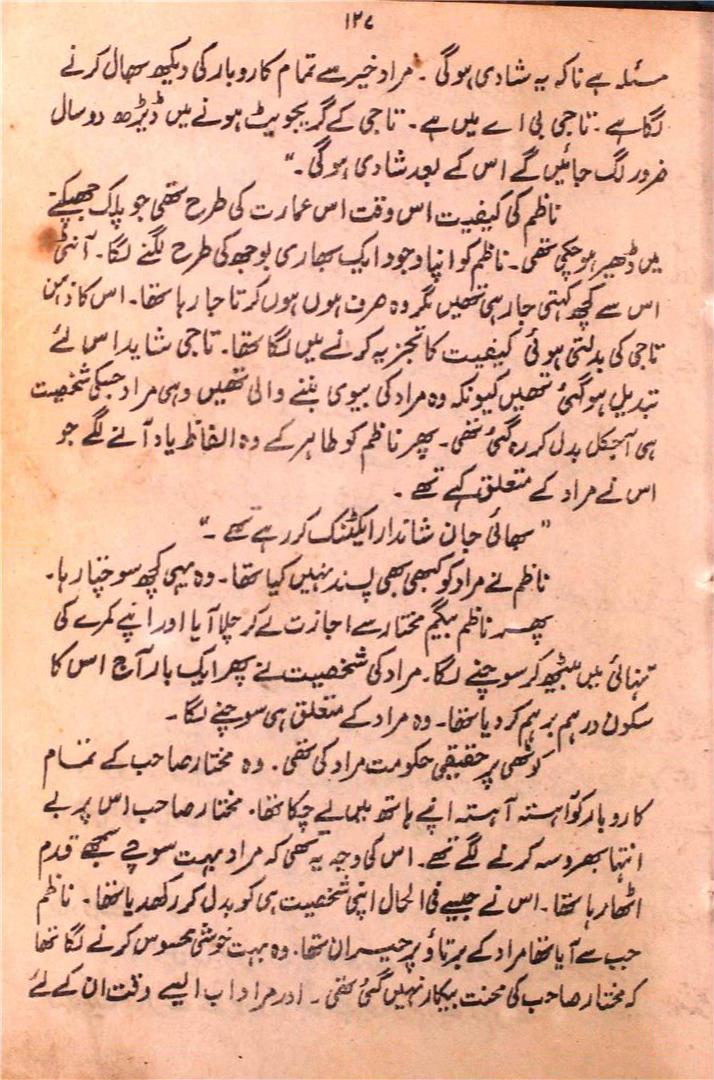 ۱۲۷
مسئلہ ہے ناکہ یہ شادی ہوگی ۔ مراد خیر سے تمام کاروبار کی دیکھ بھال کرنے
لگا ہے ۔ تاجی بی اے میں ہے ۔ تاجی کے گریجویٹ ہونے میں ڈیڑھ دو سال
ضرور لگ جائیں گے اس کے بعد شادی ہوگی ۔"
ناظم کی کیفیت اس وقت اس عمارت کی طرح تھی جو پلک جھپکتے
میں ڈھیر ہوچکی تھی ۔ ناظم کو اپنا وجود ایک بھاری بوجھ کی طرح لگنے لگا ۔ آنٹی
اس سے کچھ کہتی جا رہی تھیں مگر وہ صرف ہوں ہوں کرتا جا رہا تھا ۔ اس کا ذہن
تاجی کی بدلتی ہوئی کیفیت کا تجزیہ کرنے میں لگا تھا ۔ تاجی شاید اس لئے
تبدیل ہوگئی تھیں کیونکہ وہ مراد کی بیوی بننے والی تھیں وہی مراد جسکی شخصیت
ہی آجکل بدل کر رہ گئی تھی ۔ پھر ناظم کو طاہر کے وہ الفاظ یاد آنے لگے جو
اس نے مراد کے متعلق کہے تھے ۔
"بھائی جان شاندار ایکٹنگ کر رہے تھے ۔"
ناظم نے مراد کو کبھی بھی پسند نہیں کیا تھا ۔ وہ یہی کچھ سوچتا رہا ۔
پھر ناظم بیگم مختار سے اجازت لے کر چلا آیا اور اپنے کمرے کی
تنہائی میں بیٹھ کر سوچنے لگا ۔ مراد کی شخصیت نے پھر ایک بار آج اس کا
سکون درہم برہم کر دیا تھا ۔ وہ مراد کے متعلق ہی سوچنے لگا ۔
کوٹھی پر حقیقی حکومت مراد کی تھی ۔ وہ مختار صاحب کے تمام
کاروبار کو آہستہ آہستہ اپنے ہاتھ میں لے چکا تھا ۔ مختار صاحب اس پر بے
انتہا بھروسہ کرنے لگے تھے ۔ اس کی وجہ یہ تھی کہ مراد بہت سوچے سمجھے قدم
اٹھا رہا تھا ۔ اس نے جیسے فی الحال اپنی شخصیت ہی کو بدل کر رکھدیا تھا ۔ ناظم
جب سے آیا تھا مراد کے برتاؤ پر حیران تھا ۔ وہ بہت خوشی محسوس کرنے لگا تھا
کہ مختار صاحب کی محنت بیکار نہیں گئی تھی ۔ اور مراد اب ایسے وقت ان کے لئے